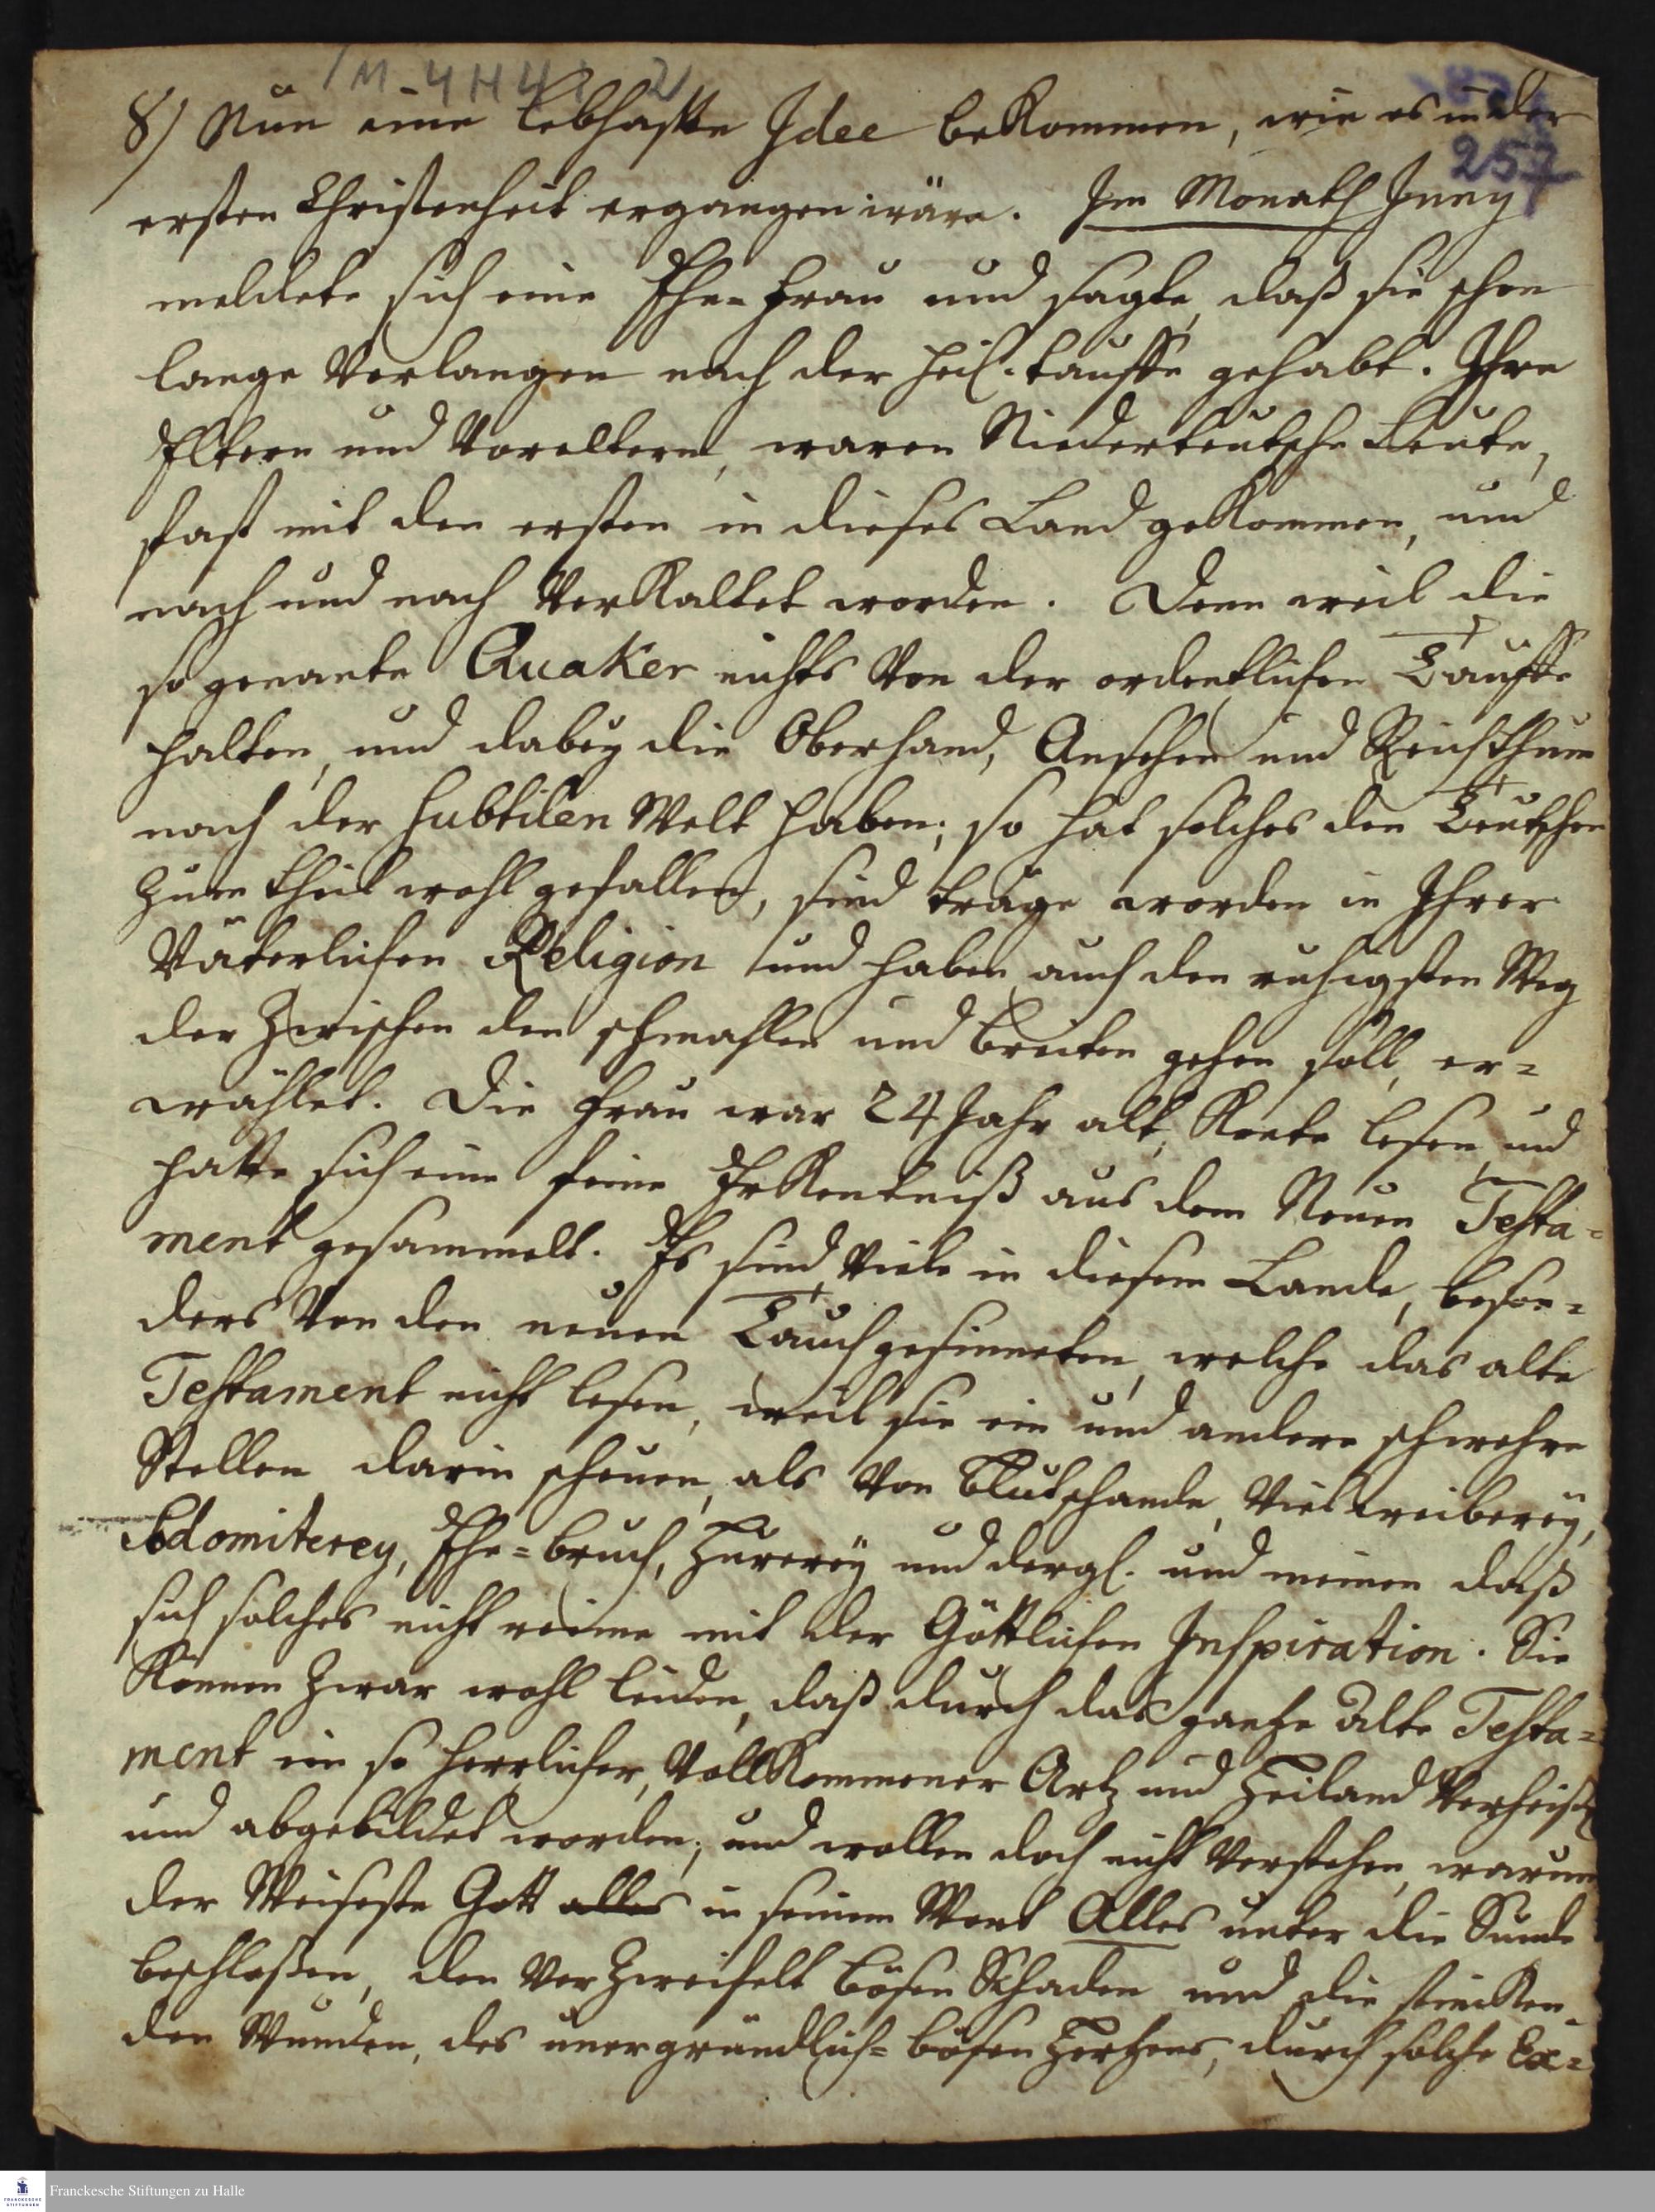 /M-4H4: 2
257
8) Nun eine lebhaffte Idee bekommen, wie es in der
ersten Christenheit ergangen wäre. Im Monath Juny
meldete sich eine Ehe-Frau und sagte, daß sie schon
lange Verlangen nach der heil. tauffe gehabt. Ihre
Eltern und Voreltern, waren Niederteutsche Leute,
fast mit den ersten in dieses Land gekommen, und
nach und nach Verkaltet worden. Denn weil die
so genante Quaker nichts Von der ordentlichen Tauffe
halten, und dabey die Oberhand, Ansehen und Reichthum
nach der subtilen Welt haben; so hat solches den Teutschen
zum theil wohl gefallen, sind träge worden in Ihrer
Väterlichen Religion und haben auch den ruhigsten Weg
der Zwischen dem schmahlen und breiten gehen soll, er=
wählet. Die Frau war 24 Jahr alt, Konte lesen, und
hatte sich eine feine Erkentniß aus dem Neuen Testa=
ment gesammelt. Es sind Viele in diesem Lande, beson=
ders Von den neuen Tauchgesinneten, welche das alte
Testament nicht lesen, weil sie ein und andere schwehre
Stellen darin scheuen, als Von Blutschande, Vielweiberey,
Sodomiterey, Ehe=bruch, Hurerey und dergl. und meinen daß
sich solches nicht reime mit der Göttlichen Inspiration. Sie
Können Zwar wohl leiden, daß durch das gantze alte Testa=
ment ein so herrlicher, VollKommener Artz und Heiland Verheiß
und abgebildet worden; und wollen doch nicht Verstehen, warum
der Weiseste Gott alles in seinem Wort Alles unter die Sunde
beschloßen, den VerZweifelt bösen Schaden und die stincken
den Wunden, des unergründlich= bösen Hertzens, durch solche Ex=
Franckesche Stiftungen zu Halle